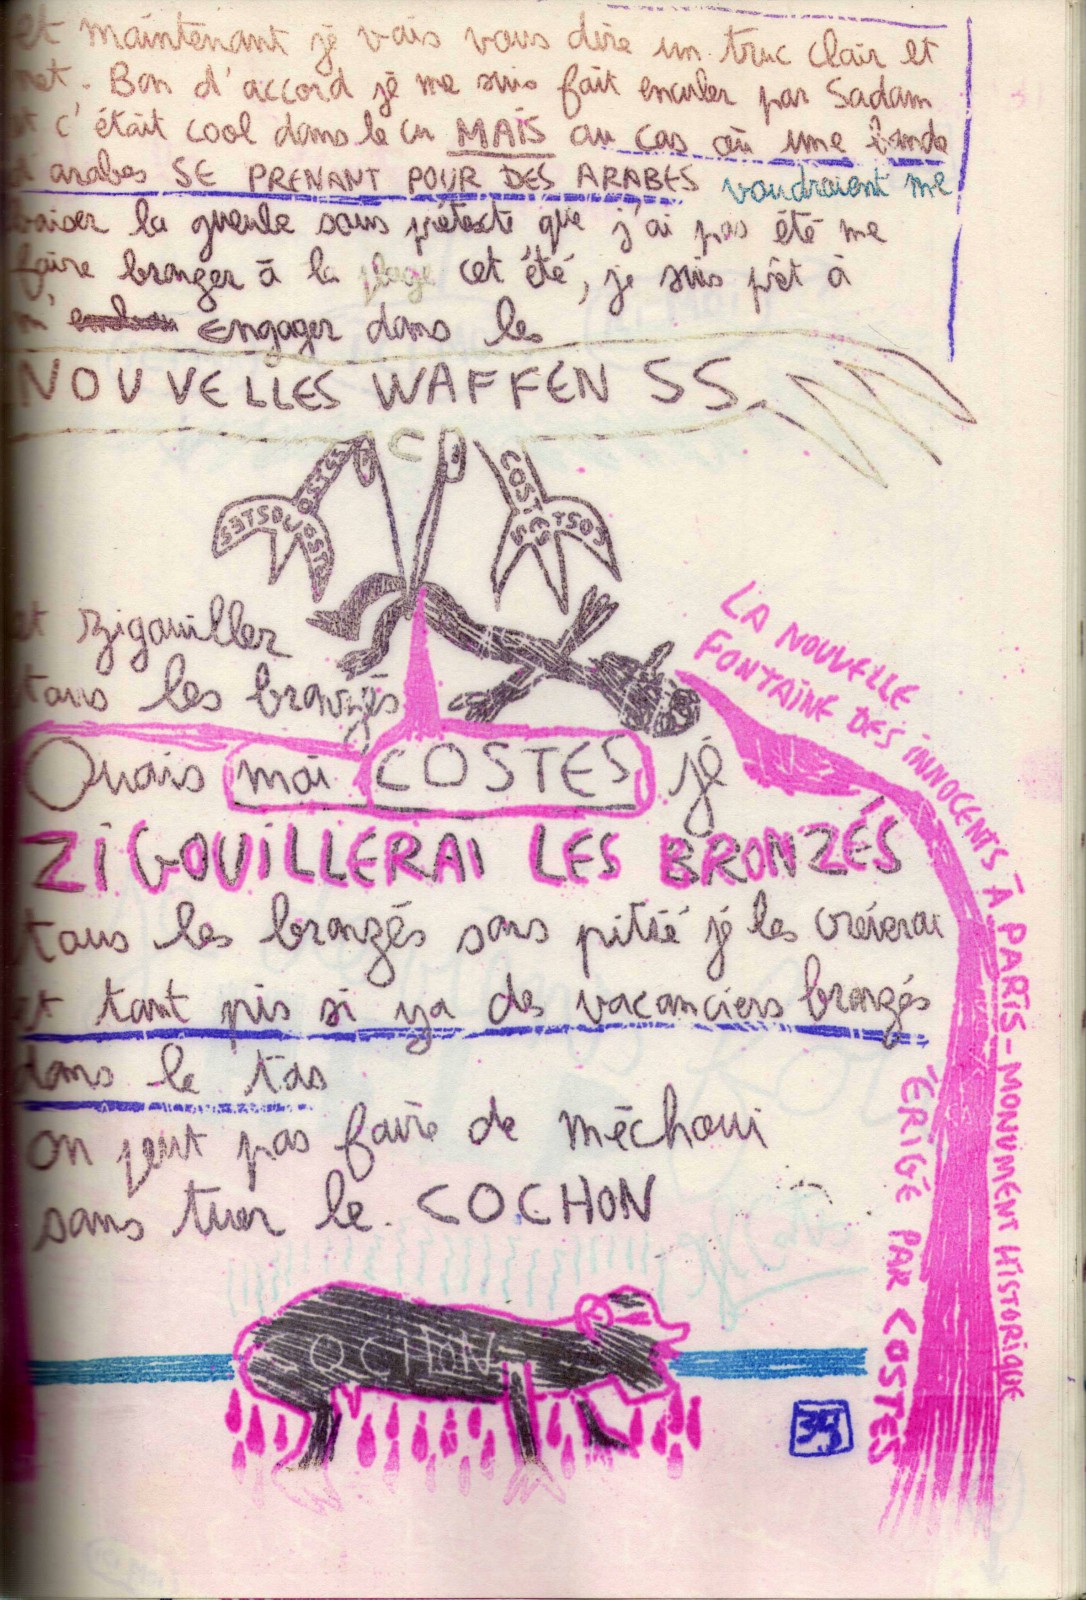 et maintenant je vais vous dire un truc clair et
net. Bon d'accord je me suis fait enculer par Sadam
et c'était cool dans le cu MAIS au cas où une bande
d arabes SE PRENANT POUR DES ARABES voudraient me
baiser la gueule sous prétexte que j'ai pas été me
faire bronzer à la plage cet été, je suis prêt à
m' engager dans les
NOUVELLES WAFFEN SS
COSTES
COST
et zigouiller
tous les bronzés
Ouais moi COSTES je
ZIGOUILLERAI LES BRONZÉS
tous les bronzés sans pitié je les crèverai
et tant pis si ya des vacanciers bronzés
dans le tas
on peut pas faire de méchoui
sans tuer le. COCHON
COCHON
LA NOUVELLE
FONTAINE DES INNOCENTS À PARIS - MONUMENT HISTORIQUE
ÉRIGÉ PAR COSTES
34